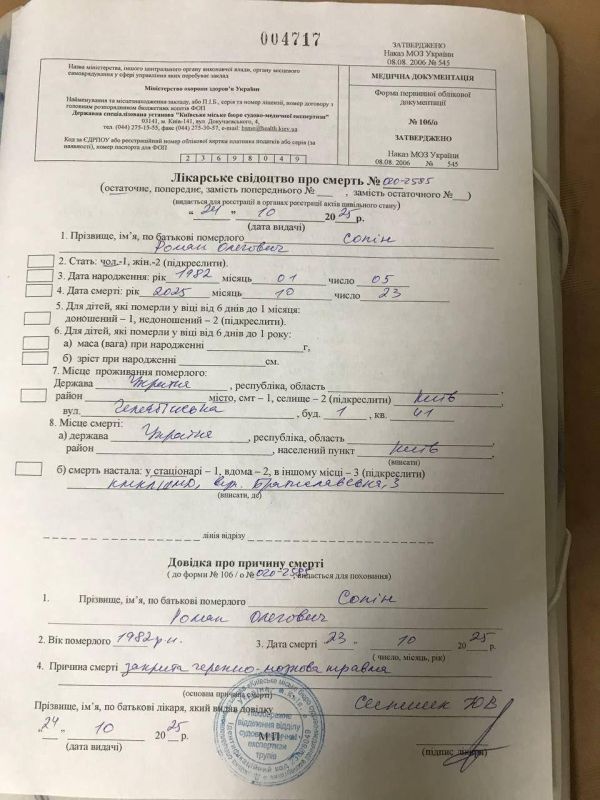 004717
ЗАТВЕРДЖЕНО
Наказ МОЗ України
08.08. 2006 № 545
Назва міністерства, іншого центрального органу виконавчої влади, органу місцевого
самоврядування у сфері управління яких перебуває заклад
Міністерство охорони здоров'я України
Найменування та місцезнаходження закладу, або П.І.Б., серія та номер ліцензії, номер договору з
головним розпорядником бюджетних коштів ФОП
Державна спеціалізована установа "Київське міське бюро судово-медичної експертизи"
03141, м. Київ-141, вул. Докучаєвська, 4,
тел. (044) 275-15-55, факс (044) 275-30-57, e-mail: bsme@health.kiev.ua
Код за ЄДРПОУ або реєстраційний номер облікової картки платника податків або серія (за
наявності), номер паспорта для ФОП
2 3 6 9 8 0 4 9
МЕДИЧНА ДОКУМЕНТАЦІЯ
Форма первинної облікової
документації
№ 106/о
ЗАТВЕРДЖЕНО
Наказ МОЗ України
08.08. 2006 № 545
Лікарське свідоцтво про смерть № 020-2585
(остаточне, попереднє, замість попереднього № ___ , замість остаточного № ___)
(видається для реєстрації в органах реєстрації актів цивільного стану)
"24" 10 2025 р.
(дата видачі)
1. Прізвище, ім'я, по батькові померлого Сопін
Роман Олегович
2. Стать: чол.-1, жін.-2 (підкреслити).
3. Дата народження: рік 1982 місяць 01 число 05
4. Дата смерті: рік 2025 місяць 10 число 23
5. Для дітей, які померли у віці від 6 днів до 1 місяця:
доношений – 1, недоношений – 2 (підкреслити).
6. Для дітей, які померли у віці від 6 днів до 1 року:
а) маса (вага) при народженні ___ г,
б) зріст при народженні ___ см.
7. Місце проживання померлого:
Держава Україна , республіка, область
район місто, смт – 1, селище – 2 (підкреслити) Київ
вул. , буд. 1 , кв. 41
8. Місце смерті:
а) держава Україна , республіка, область
район , населений пункт Київ
(вписати)
б) смерть настала: у стаціонарі – 1, вдома – 2, в іншому місці – 3 (підкреслити)
вул. Братиславська, 3
(вписати, де)
лінія відрізу
Довідка про причину смерті
( до форми № 106 / о № 020-2585, видається для поховання)
1. Прізвище, ім'я, по батькові померлого Сопін
Роман Олегович
2. Вік померлого 1982 р.н. 3. Дата смерті "23" 10 2025 р.
( число, місяць, рік)
4. Причина смерті закрита черепно-мозкова травма
(основна причина смерті)
Прізвище, ім'я, по батькові лікаря, який видав довідку ЮВ
"24" 10 2025 р. М.П.
(дата видачі) (підпис лікаря)
відділення відділу
судово-медичної
експертизи
трупів